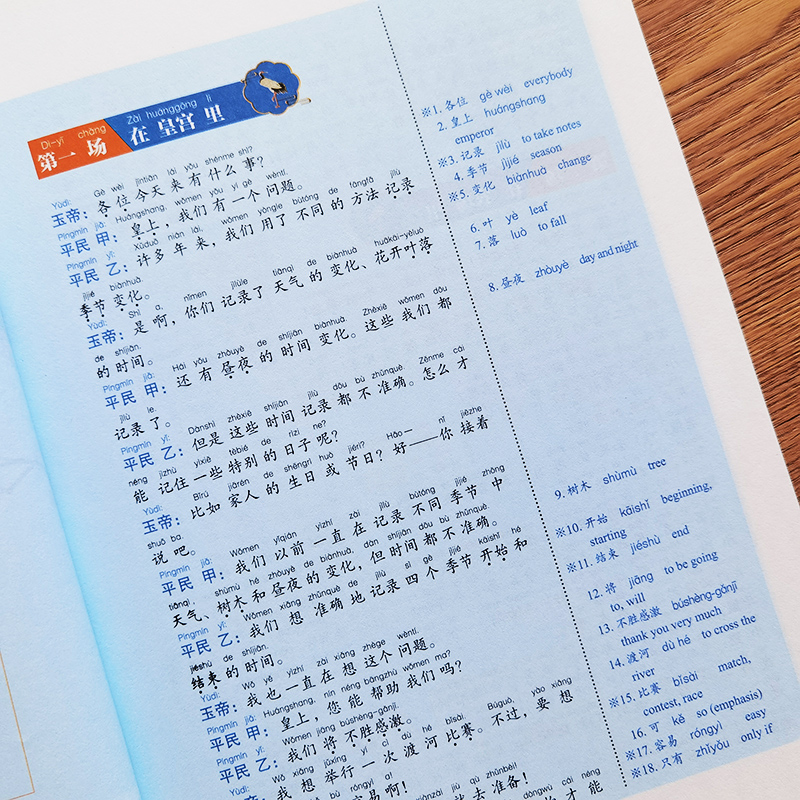 Dì-yī chǎng Zài huánggōng lǐ
第一场 在皇宫里
Yùdì: Gè wèi jīntiān lái yǒu shénme shì?
玉帝：各位今天来有什么事？
Píngmín jiǎ: Huángshang, wǒmen yǒu yí gè wèntí.
平民甲：皇上，我们有一个问题。
Píngmín yǐ: Xǔduō nián lái, wǒmen yòngle bùtóng de fāngfǎ jìlù
平民乙：许多年来，我们用了不同的方法记录
jìjié biànhuà
季节变化。
Yùdì: Shì a, nǐmen jìlùle tiānqì de biànhuà huākāi-yèluò
玉帝：是啊，你们记录了天气的变化、花开叶落
de shíjiān.
的时间。
Píngmín jiǎ: Hái yǒu zhòuyè de shíjiān biànhuà. Zhèxiē wǒmen dōu
平民甲：还有昼夜的时间变化。这些我们都
jìlù le.
记录了。
Píngmín yǐ: Dànshì zhèxiē shíjiān jìlù dōu bù zhǔnquè. Zěnme cái
平民乙：但是这些时间记录都不准确。怎么才
néng jìzhù yìxiē tèbié de rìzi ne?
能记住一些特别的日子呢？
Yùdì: Bǐrú jiārén de shēngrì huò jiérì? Hǎo— nǐ jiēzhe
玉帝：比如家人的生日或节日？好——你接着
shuō ba.
说吧。
Píngmín jiǎ: Wǒmen yǐqián yìzhí zài jìlù bùtóng jìjié zhōng
平民甲：我们以前一直在记录不同季节中
tiānqì, shùmù hé zhòuyè de biànhuà, dàn shíjiān dōu bù zhǔnquè.
天气、树木和昼夜的变化，但时间都不准确。
Píngmín yǐ: Wǒmen xiǎng zhǔnquè de jìlù sì gè jìjié kāishǐ hé
平民乙：我们想准确地记录四个季节开始和
jiéshù de shíjiān.
结束的时间。
Yùdì: Wǒ yě yìzhí zài xiǎng zhège wèntí.
玉帝：我也一直在想这个问题。
Píngmín jiǎ: Huángshang, nín néng bāngzhù wǒmen ma?
平民甲：皇上，您能帮助我们吗？
Píngmín yǐ: Wǒmen jiāng bùshèng-gǎnjī.
平民乙：我们将不胜感激。
Yùdì: Wǒ xiǎng jǔxíng yí cì dù hé bǐsài. Búguò, yào xiǎng
玉帝：我想举行一次渡河比赛。不过，要想
bù róngyì a!
容易啊！
就去准备！
才能
※1. 各位 gè wèi everybody
2. 皇上 huángshang
emperor
※3. 记录 jìlù to take notes
4. 季节 jìjié season
※5. 变化 biànhuà change
6. 叶 yè leaf
7. 落 luò to fall
8. 昼夜 zhòuyè day and night
9. 树木 shùmù tree
※10. 开始 kāishǐ beginning,
starting
※11. 结束 jiéshù end
12. 将 jiāng to be going
to, will
13. 不胜感激 búshèng-gǎnjī
thank you very much
14. 渡河 dù hé to cross the
river
※15. 比赛 bǐsài match,
contest, race
16. 可 kě so (emphasis)
※17. 容易 róngyì easy
※18. 只有 zhǐyǒu only if